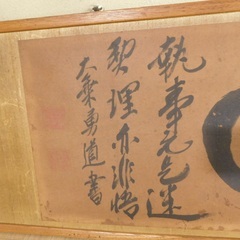 執事元是迷
契理亦非悟
大乘勇道書